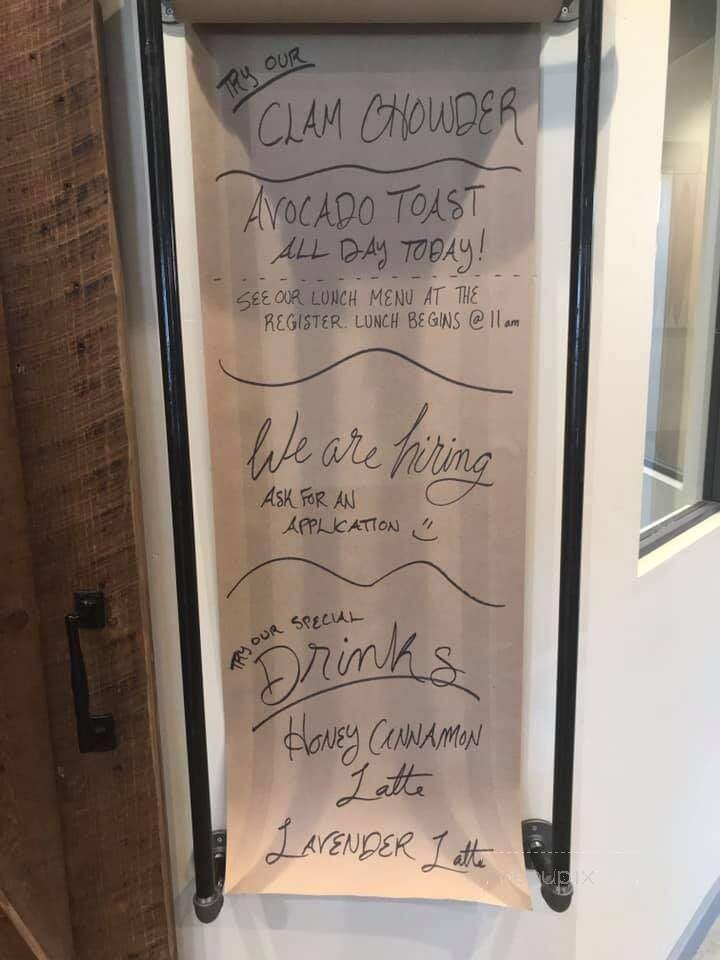 TRY OUR
CLAM CHOWDER
AVOCADO TOAST
ALL DAY TODAY!
SEE OUR LUNCH MENU AT THE
REGISTER. LUNCH BEGINS @ 11am
We are hiring
ASK FOR AN
APPLICATION
TRY OUR SPECIAL
Drinks
HONEY CINNAMON
Latte
LAVENDER Latte